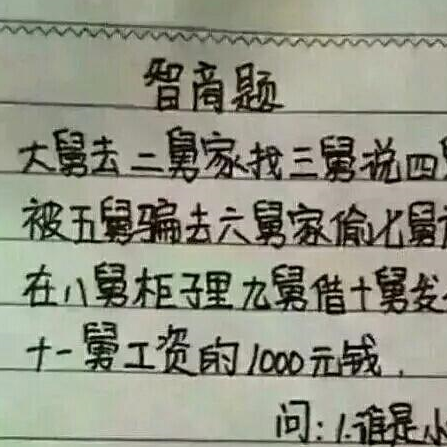 智商题
大舅去二舅家找三舅说四
被五舅骗去六舅家偷七舅
在八舅柜子里九舅借十舅发
十一舅工资的1000元钱,
问:1.谁是小